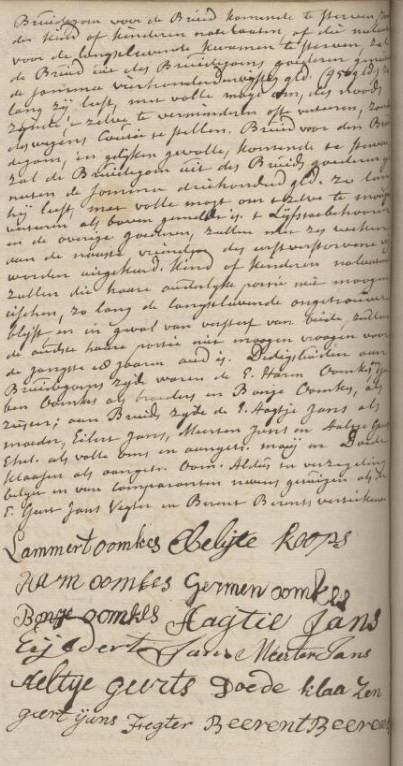 Bruidegom voor de Bruid komende te sterven,
der kind of kinderen nalatende, of die
voor de langstlevende kwamen te sterven, zal
de Bruid uit des Bruidegoms goederen
de somma vierhonderdvijftig gld. (450 gld)
lang zij leeft, met volle magt om, des noods
zijnde, 't zelve te verminderen ofte verteeren, zonder
deswegens Cautie te stellen. Bruid voor den
degom, in gelijken gevalle, komende te sterven
zal de Bruidegom uit des Bruids goederen
nieten de somma driehonderd gld. zo lang
hij leeft, met volle magt om 't zelve te mogen
verteeren als boven gemeldt is. t Lijfstoebehooren
en de overige goederen, zullen met zes weeken
aan de naaste vrienden des eerstverstorvene
worden uitgekeerd. Kind of kinderen nalatende
zullen die haare ouderlyke portie niet moogen
eischen, zo lang de langstlevende ongetrouwd
blijft en in geval van versterf van beide, zullen
de oudste haare portie niet moogen vragen voor
de jongste 18 jaaren oud is. Dedigsluiden aan
Bruidegoms zijd waren de E. Harm Oomkes en
ben Oomkes als broeders en Bonje Oomkes, als
zuster; aan Bruids zyde de E. Hagtje Jans als
moeder, Eilert Jans, Meerten Jans en Aaltje
als volle oms en aangetr. moeij en Doede
klaassen als aangetr. Oom. Aldus ter verzegeling
belyd en van comparanten nevens getuigen als de
E. Geert Jans Vegter en Berent Berents vertekend
Lammert oomkes Ebeltje Koops
Harm oomkes Germen oomkes
Bonje oomkes Hagtie Jans
Eijldert Jans Meerten Jans
Aeltye geurts Doede klaa zen
geert ijans Fegter Beerent Beerents